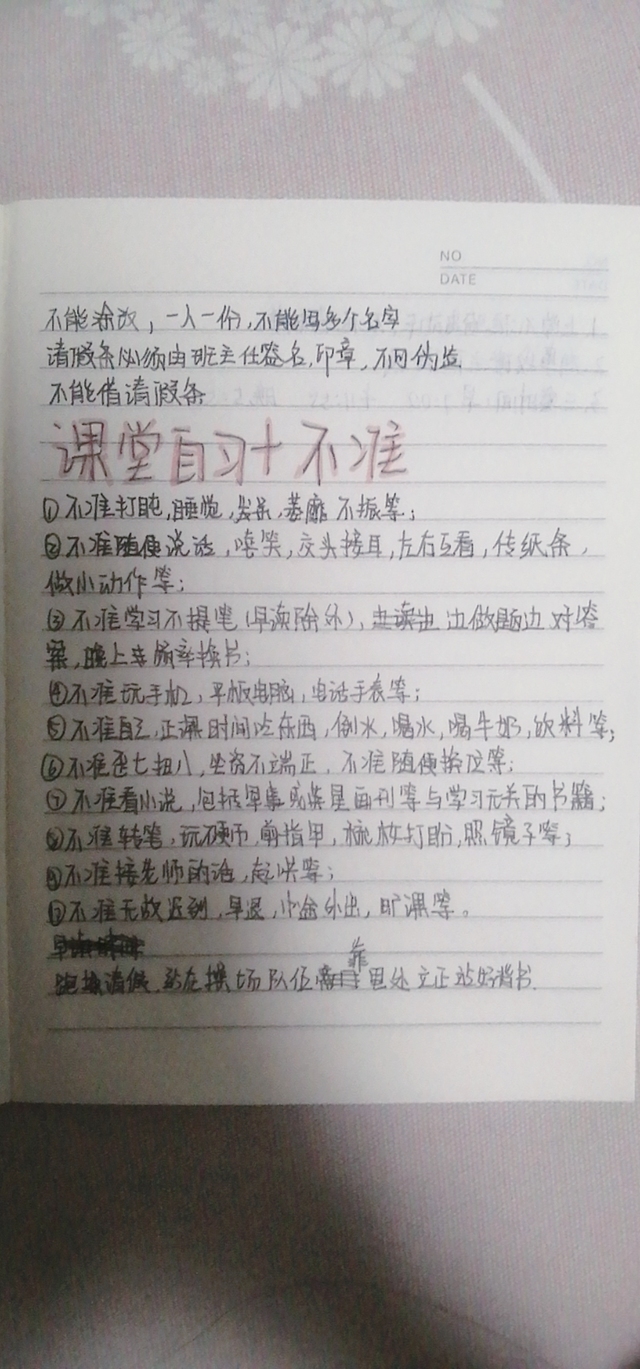 NO
DATE
不能涂改，一人一份，不能写多个名字
请假条必须由班主任签名，印章，不可伪造
不能借请假条
课堂自习十不准
①不准打盹，睡觉，发呆，萎靡不振等；
②不准随便说话，嘻笑，交头接耳，左右互看，传纸条，
做小动作等；
③不准学习不提笔（早读除外），边做题边对答
案，晚上
④不准玩手机，平板电脑，电话手表等；
⑤不准自习，正课时间吃东西，倒水，喝水，喝牛奶，饮料等；
⑥不准歪七扭八，坐姿不端正，不准随便换位等；
⑦不准看小说，包括军事或类星画刊等与学习无关的书籍；
⑧不准转笔，玩硬币，剪指甲，梳妆打扮，照镜子等；
⑨不准接老师的话，起哄等；
⑩不准无故迟到，早退，中途外出，旷课等。
跑操请假，站在操场队伍靠里处立正站好背书.